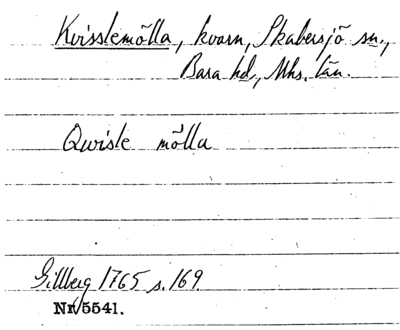 Kvisslemölla, kvarn, Skabersjö sn.,
Bara hd., Mhs. län.
Qwisle mölla
Gillberg 1765 s. 169.
Nr 5541.